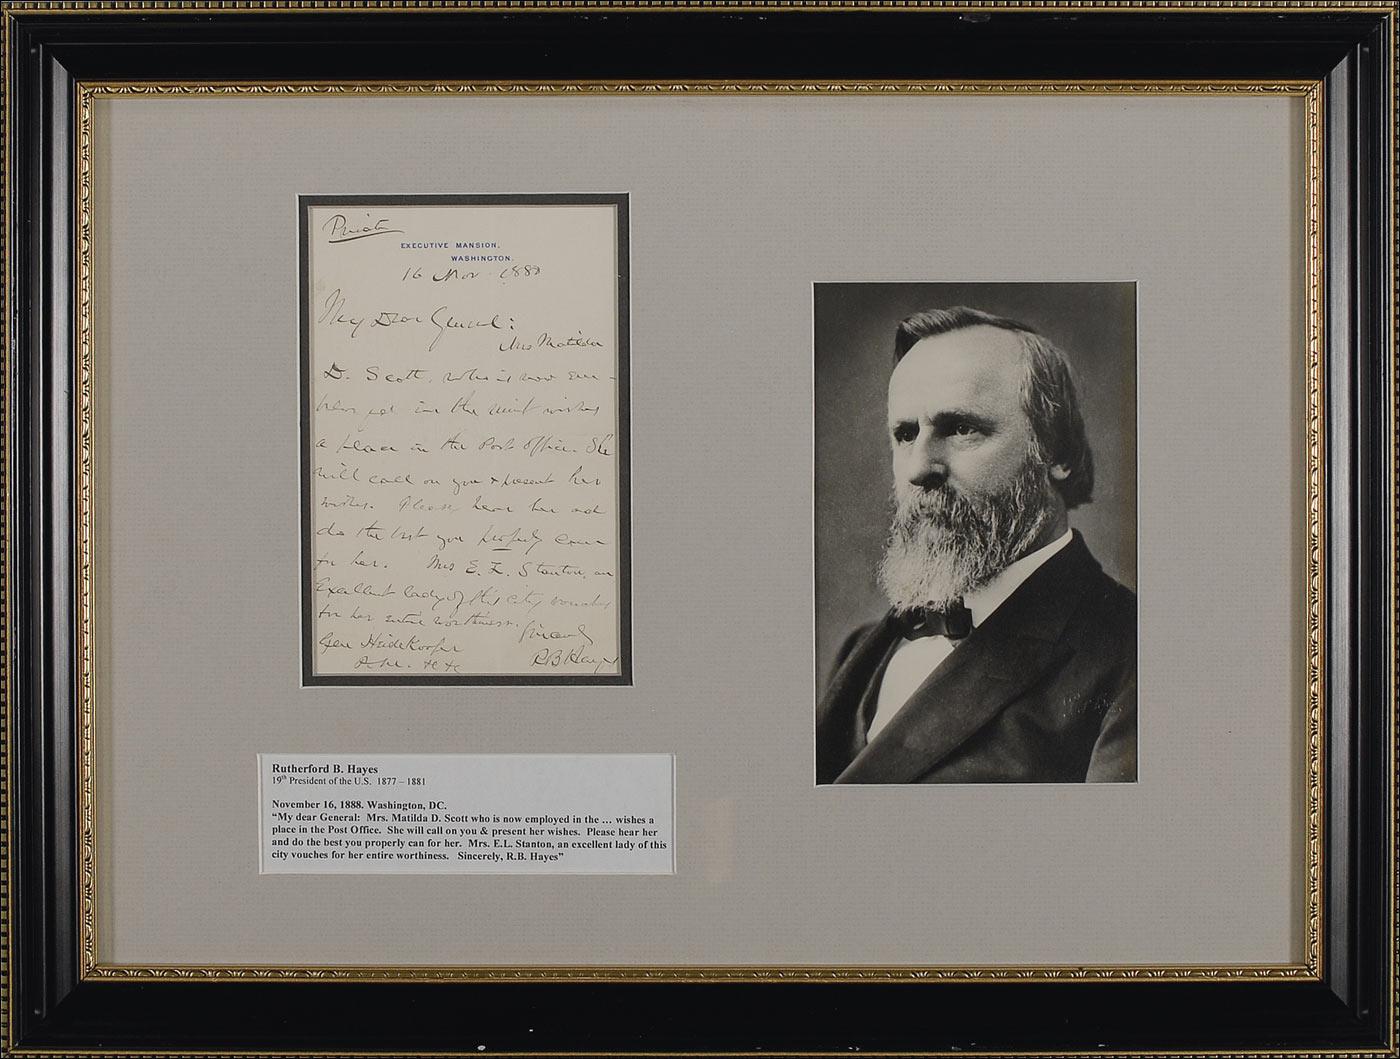 Private
EXECUTIVE MANSION,
WASHINGTON.
16 Nov 1880
My Dear General:
Mrs Matilda
D. Scott, who is now em-
ployed in the mint wishes
a place in the Post Office. She
will call on you & present her
wishes. Please hear her and
do the best you properly can
for her. Mrs E. L. Stanton, an
Excellent lady of this city vouches
for her entire worthiness.
Sincerely
Gen Heidekoper
R B Hayes
&c &c
Rutherford B. Hayes
19th President of the U.S. 1877 – 1881
November 16, 1888. Washington, DC.
“My dear General: Mrs. Matilda D. Scott who is now employed in the … wishes a
place in the Post Office. She will call on you & present her wishes. Please hear her
and do the best you properly can for her. Mrs. E.L. Stanton, an excellent lady of this
city vouches for her entire worthiness. Sincerely, R.B. Hayes”